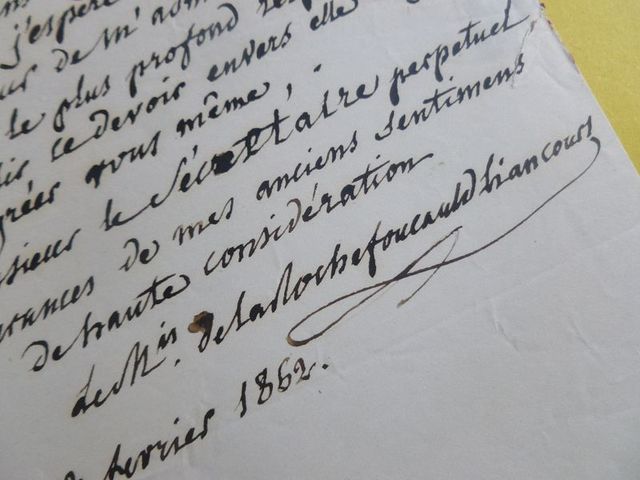 j'espère
de m'
le plus profond
ce devoir envers elle
vous même,
le Sécrétaire perpetuel
de mes anciens sentimens
de haute considération
le Mis. de la Rochefoucauld liancourt
fevrier 1862.